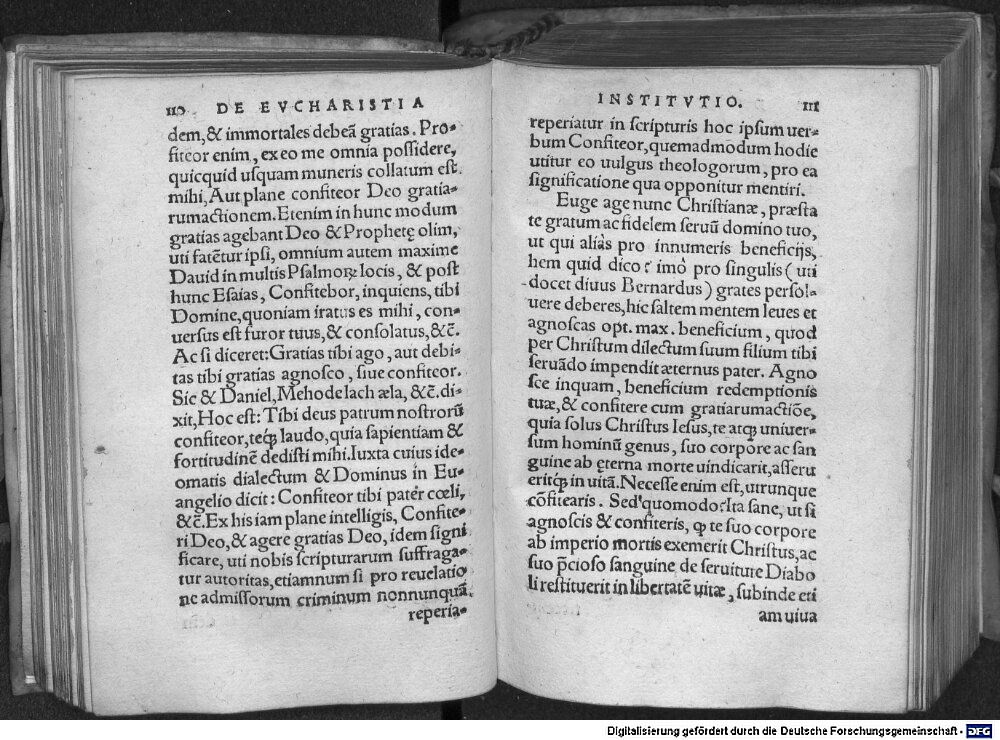 110 DE EVCHARISTIA
dem,& immortales debeā gratias. Pro-
fiteor enim, ex eo me omnia possidere,
quicquid usquam muneris collatum est
mihi, Aut plane confiteor Deo gratia-
rumactionem. Etenim in hunc modum
gratias agebant Deo & Prophetę olim,
uti fatētur ipsi, omnium autem maxime
Dauid in multis Psalmoꝝ locis, & post
hunc Esaias, Confitebor, inquiens, tibi
Domine, quoniam iratus es mihi, con-
uersus est furor tuus, & consolatus, &c̄.
Ac si diceret: Gratias tibi ago, aut debi-
tas tibi gratias agnosco, siue confiteor.
Sic & Daniel, Mehodelach æla, &c̄. di-
xit, Hoc est: Tibi deus patrum nostrorū
confiteor, teqʒ laudo, quia sapientiam &
fortitudinē dedisti mihi. Iuxta cuius ide-
omatis dialectum & Dominus in Eu-
angelio dicit: Confiteor tibi pater cœli,
&c̄. Ex his iam plane intelligis, Confite-
ri Deo, & agere gratias Deo, idem signi
ficare, uti nobis scripturarum suffraga-
tur autoritas, etiamnum si pro reuelatio
ne admissorum criminum nonnunquā
reperia-
INSTITVTIO. 111
reperiatur in scripturis hoc ipsum uer-
bum Confiteor, quemadmodum hodie
utitur eo uulgus theologorum, pro ea
significatione qua opponitur mentiri.
Euge age nunc Christianæ, præsta
te gratum ac fidelem seruū domino tuo,
ut qui aliàs pro innumeris beneficijs,
hem quid dico? imò pro singulis (uti
docet diuus Bernardus) grates persol-
uere deberes, hic saltem mentem leues et
agnoscas opt. max. beneficium, quod
per Christum dilectum suum filium tibi
seruādo impendit æternus pater. Agno
sce inquam, beneficium redemptionis
tuæ, & confitere cum gratiarumactiōe,
quia solus Christus Iesus, te atqʒ uniuer-
sum hominū genus, suo corpore ac san
guine ab ęterna morte uindicarit, asseru
eritqʒ in uitā. Necesse enim est, utrunque
cōfitearis. Sed quomodo? Ita sane, ut si
agnoscis & confiteris, ꝙ te suo corpore
ab imperio mortis exemerit Christus, ac
suo p̄cioso sanguine de seruiture Diabo
li restituerit in libertatē uitæ, subinde eti
am uiua
Digitalisierung gefördert durch die Deutsche Forschungsgemeinschaft - DFG